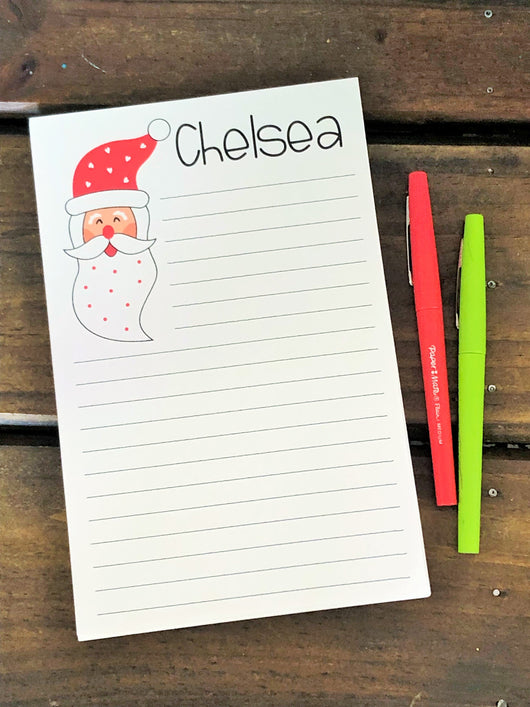 Chelsea
Paper:Mate® Flair. MEDIUM